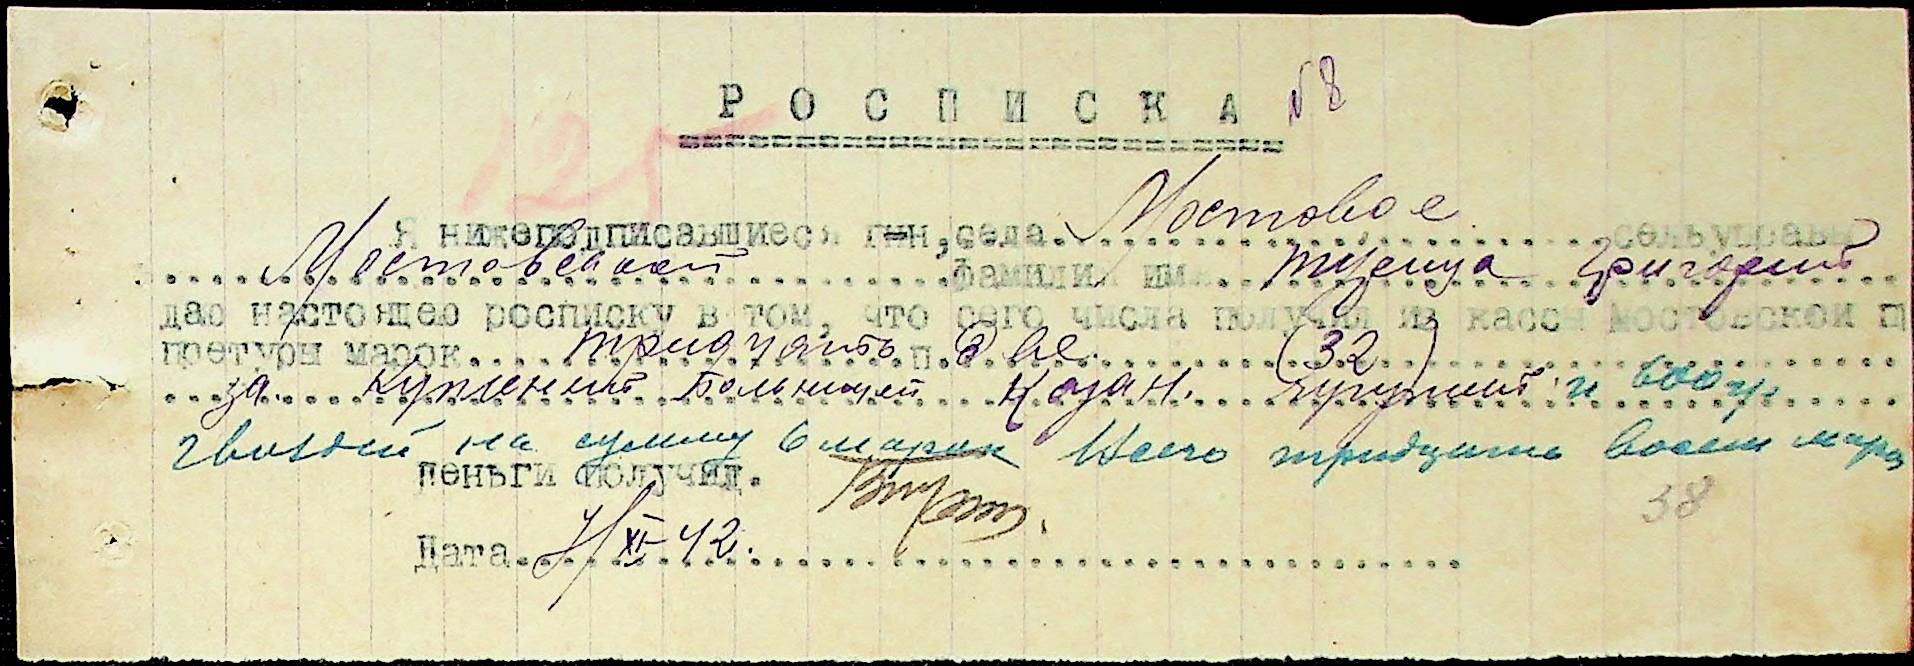 РОСПИСКА № 8
125
Я нижеподписавшиеся г-н, села Мостовое сельуправы
Мостовской фамилия имя Григорий
даю настоящею росписку в том, что сего числа получил из кассы Мостовской п
претуры марок тридчать п. две. (32)
за. купленый больницей Казан. и 600 гр
гвоздей на сумму 6 марок Всего тридцать восем марк
деньги получил.
38
Дата XI-42.